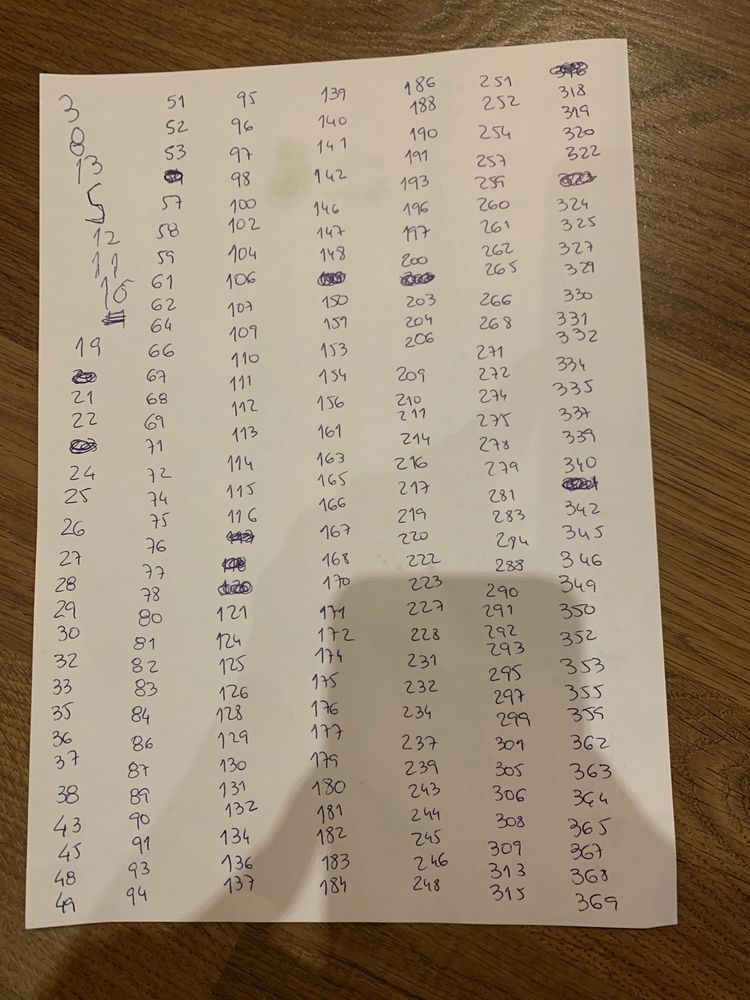 3
8
13
5
12
11
16
19
21
22
24
25
26
27
28
29
30
32
33
35
36
37
38
43
45
48
49
51
52
53
57
58
59
61
62
64
66
67
68
69
71
72
74
75
76
77
78
80
81
82
83
84
86
87
89
90
91
93
94
95
96
97
98
100
102
104
106
107
109
110
111
112
113
114
115
116
121
124
125
126
128
129
130
131
132
134
136
137
139
140
141
142
146
147
148
150
151
153
154
156
161
163
165
166
167
168
170
171
172
174
175
176
177
179
180
181
182
183
184
186
188
190
191
193
196
197
200
203
204
206
209
210
211
214
216
217
219
220
222
223
227
228
231
232
234
237
239
243
244
245
246
248
251
252
254
257
259
260
261
262
265
266
268
271
272
274
275
278
279
281
283
294
288
290
291
292
293
295
297
299
301
305
306
308
309
313
315
318
319
320
322
324
325
327
329
330
331
332
334
335
337
339
340
342
345
346
349
350
352
353
355
359
362
363
364
365
367
368
369